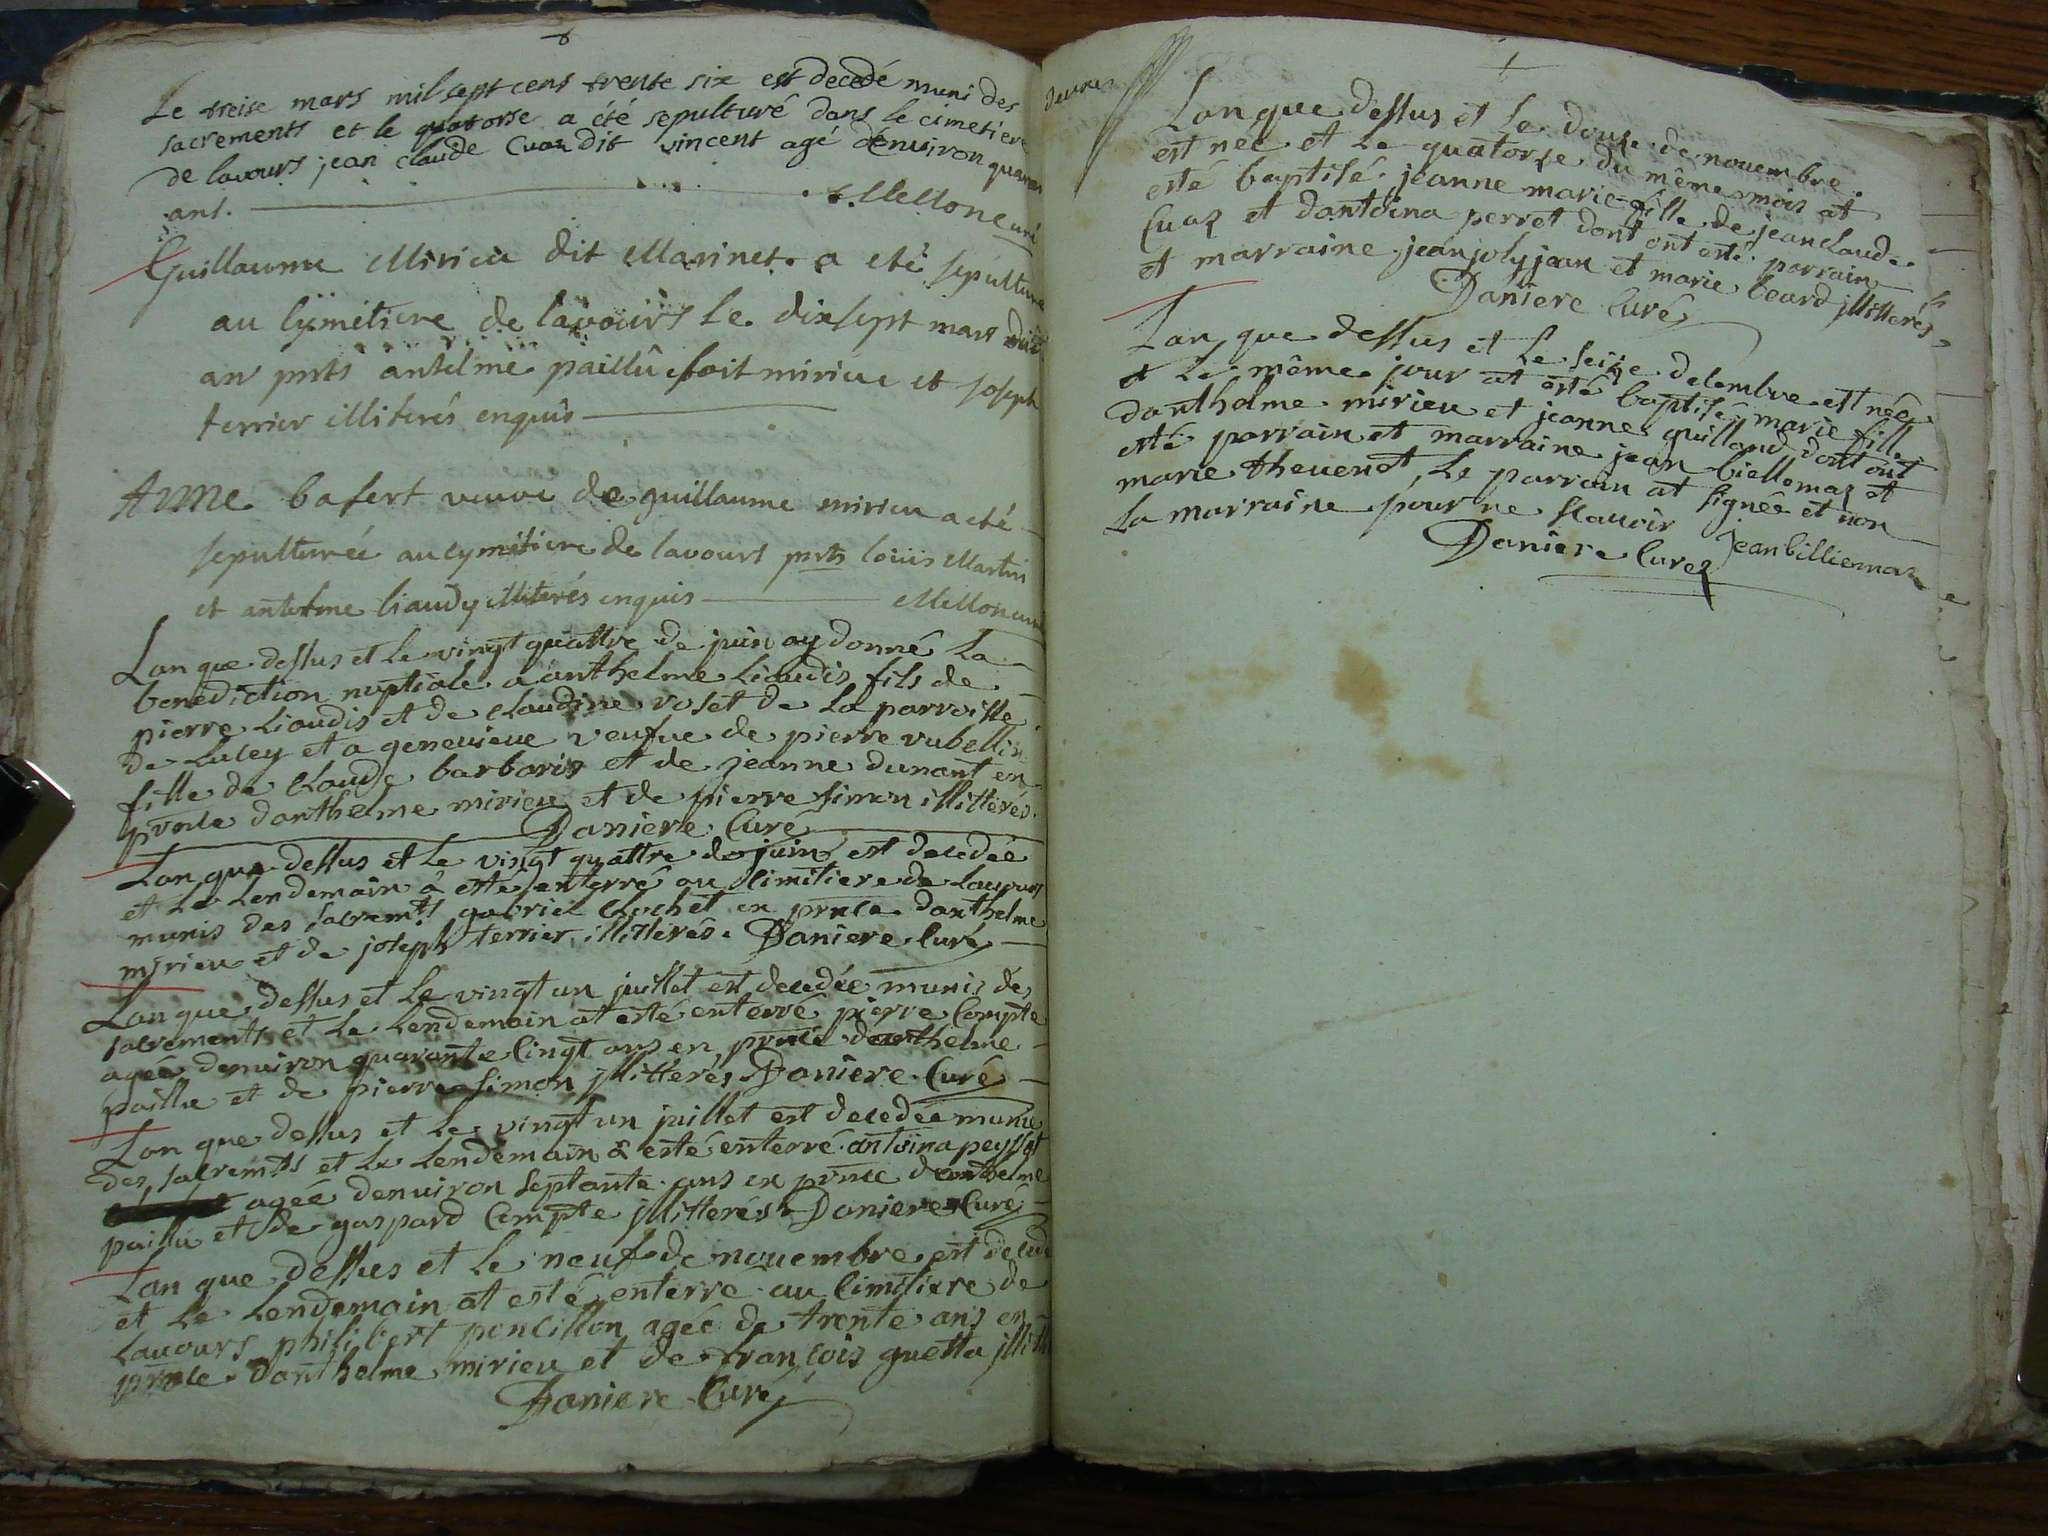 Le treise mars mil sept cens trente six est decedé muni des
sacrements et le quatorse a été sepulturé dans le cimetiere
de lavours jean claude Cuaz dit vincent agé d'enuiron quarante
ans. Mellon Curé
Guillaume Mirieu dit Marinet a eté sepulturé
au cymétiere de lavours le dixsept mars dudit
an pnts antelme paillû soit mirieu et joseph
terrier illiterés enquis
Anne basert veuve de guillaume mirieu a eté
sepulturée au cymétiere de lavours pnts loüis Martin
et antelme liaudy illiterés enquis Mellon curé
Lan que dessus et le vingt quattre de juin ay donné La
benediction nuptiale a anthelme Liaudis fils de
pierre Liaudis et de claudine roset de La parroisse
de Lucey et a geneuieue veufue de pierre vubellin
fille de Claude barbarin et de jeanne dunant en
pnce danthelme mirieu et de pierre simon illitterés.
Daniere Curé
Lan que dessus et le vingt quattre de juin est decedée
et Le Lendemain â esté enterré au Cimitiere de Lauours
munis des sacremts gabriel Clochet en pnce danthelme
mirieu et de joseph terrier illitterés. Daniere Curé
Lan que dessus et Le vingt un juillet est decedée munis des
sacrements et Le Lendemain at esté enterré pierre Compte
agée denuiron quarante Cinqt ans en pnce danthelme
paillu et de pierre simon jllitterés Daniere Curé
Lan que dessus et Le vingt un juillet est decedée munie
des sacremts et Le Lendemain â esté enterré antoina peysset
agée denuiron septante ans en pnce danthelme
paillu et de gaspard Compte jllitterés Daniere Curé
Lan que dessus et Le neuf de nouembre est decedé
et Le Lendemain at esté enterre au Cimitiere de
Lauours philibert poncillon agée de trente ans en
pnce danthelme mirieu et de françois guetta jllitt
Daniere Curé
Lan que dessus et Le douse de nouembre
est née et Le quatorse du même mois at
esté baptisé jeanne marie fille de jean claude
Cuaz et dantoina perret dont ont esté parrain
et marraine jean joly jean et marie beard jllitterés
Daniere Curé
Lan que dessus et Le seize decembre est née
et Le même jour at esté baptisé marie fille
danthelme mirieu et jeanne guilland dont ont
esté parrain et marraine jean biellemaz et
marie theuenot, Le parrain at signée et non
La marraine pour ne scauoir jean billiemaz
Daniere Curez